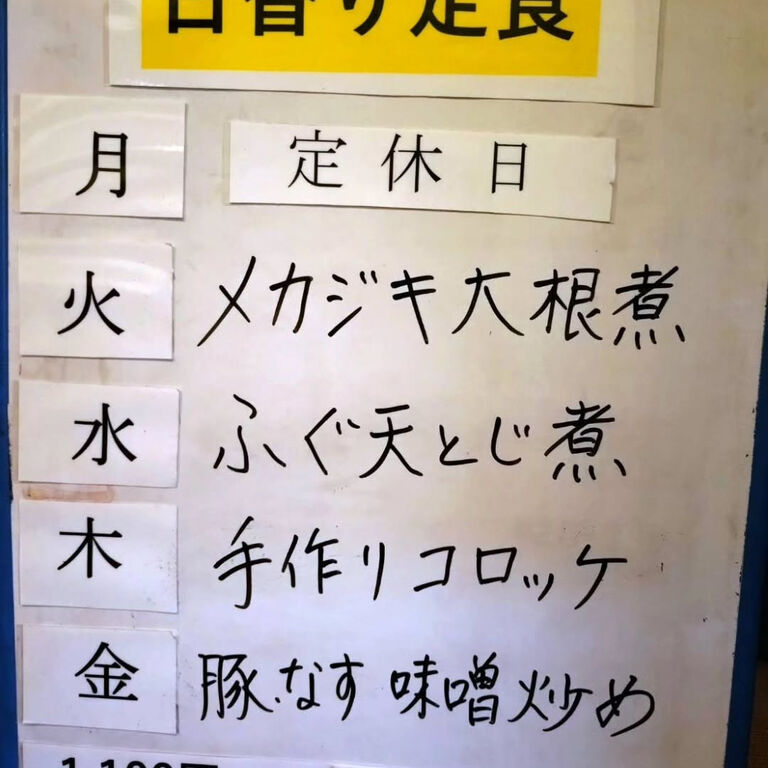 日替り定食
月 定休日
火 メカジキ大根煮
水 ふぐ天とじ煮
木 手作りコロッケ
金 豚、なす 味噌炒め